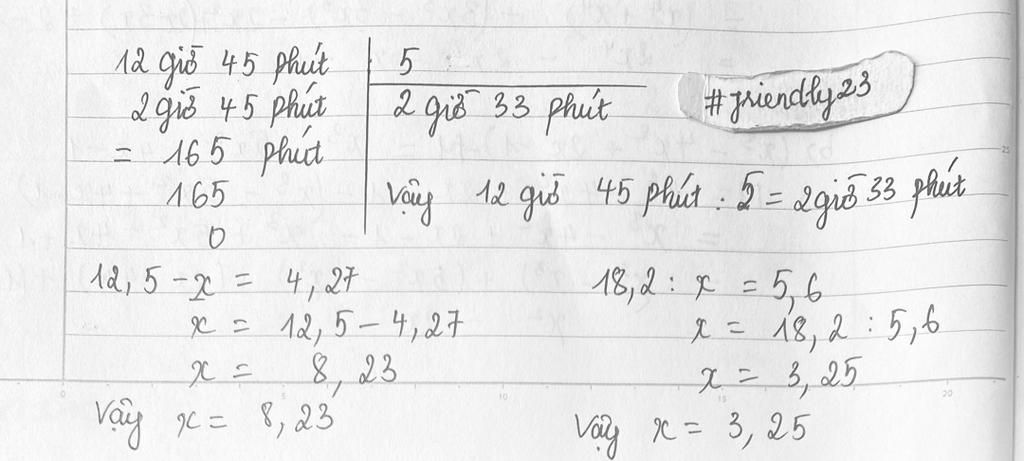 12 giờ 45 phút | 5
2 giờ 45 phút | 2 giờ 33 phút
= 165 phút
165
0
Vậy 12 giờ 45 phút : 5 = 2 giờ 33 phút
#friendly23
12,5 - x = 4,27
x = 12,5 - 4,27
x = 8,23
Vậy x = 8,23
18,2 : x = 5,6
x = 18,2 : 5,6
x = 3,25
Vậy x = 3,25